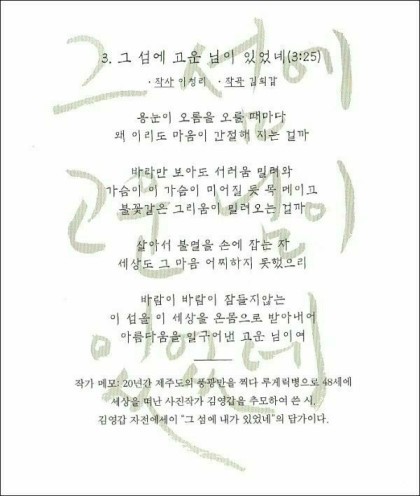 그 섬에
고운 님이
있었네
3. 그 섬에 고운 님이 있었네(3:25)
· 작사 이청리 · 작곡 김희갑
용눈이 오름을 오를 때마다
왜 이리도 마음이 간절해 지는 걸까
바다만 보아도 서러움 밀려와
가슴이 이 가슴이 미어질 듯 목 메이고
불꽃같은 그리움이 밀려오는 걸까
살아서 불멸을 손에 잡는 자
세상도 그 마음 어찌하지 못했으리
바람이 바람이 잠들지않는
이 섬을 이 세상을 온몸으로 받아내어
아름다움을 일구어낸 고운 님이여
작가 메모: 20년간 제주도의 풍광만을 찍다 루게릭병으로 48세에
세상을 떠난 사진작가 김영갑을 추모하여 쓴 시.
김영갑 자전에세이 "그 섬에 내가 있었네"의 답가이다.